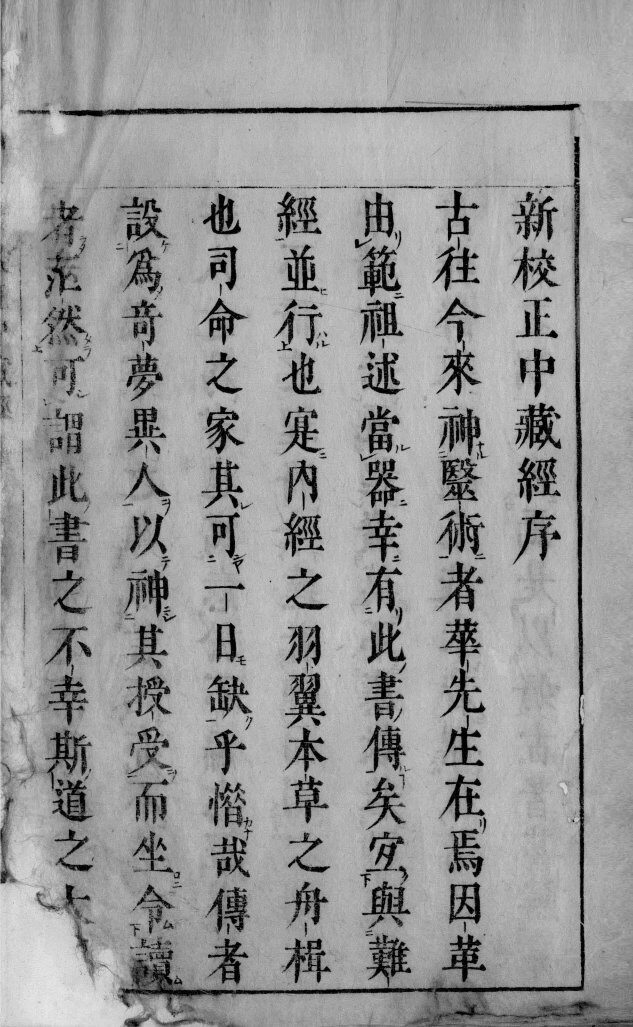 新校正中藏經序
古往今來神毉術者華先生在焉因革
由範祖述當器幸有此書傳矣宐與難
經並行也寔內經之羽翼本草之舟楫
也司命之家其可一日缺乎惜哉傳者
設爲竒夢異人以神其授受而坐令讀
者茫然可謂此書之不幸斯道之大